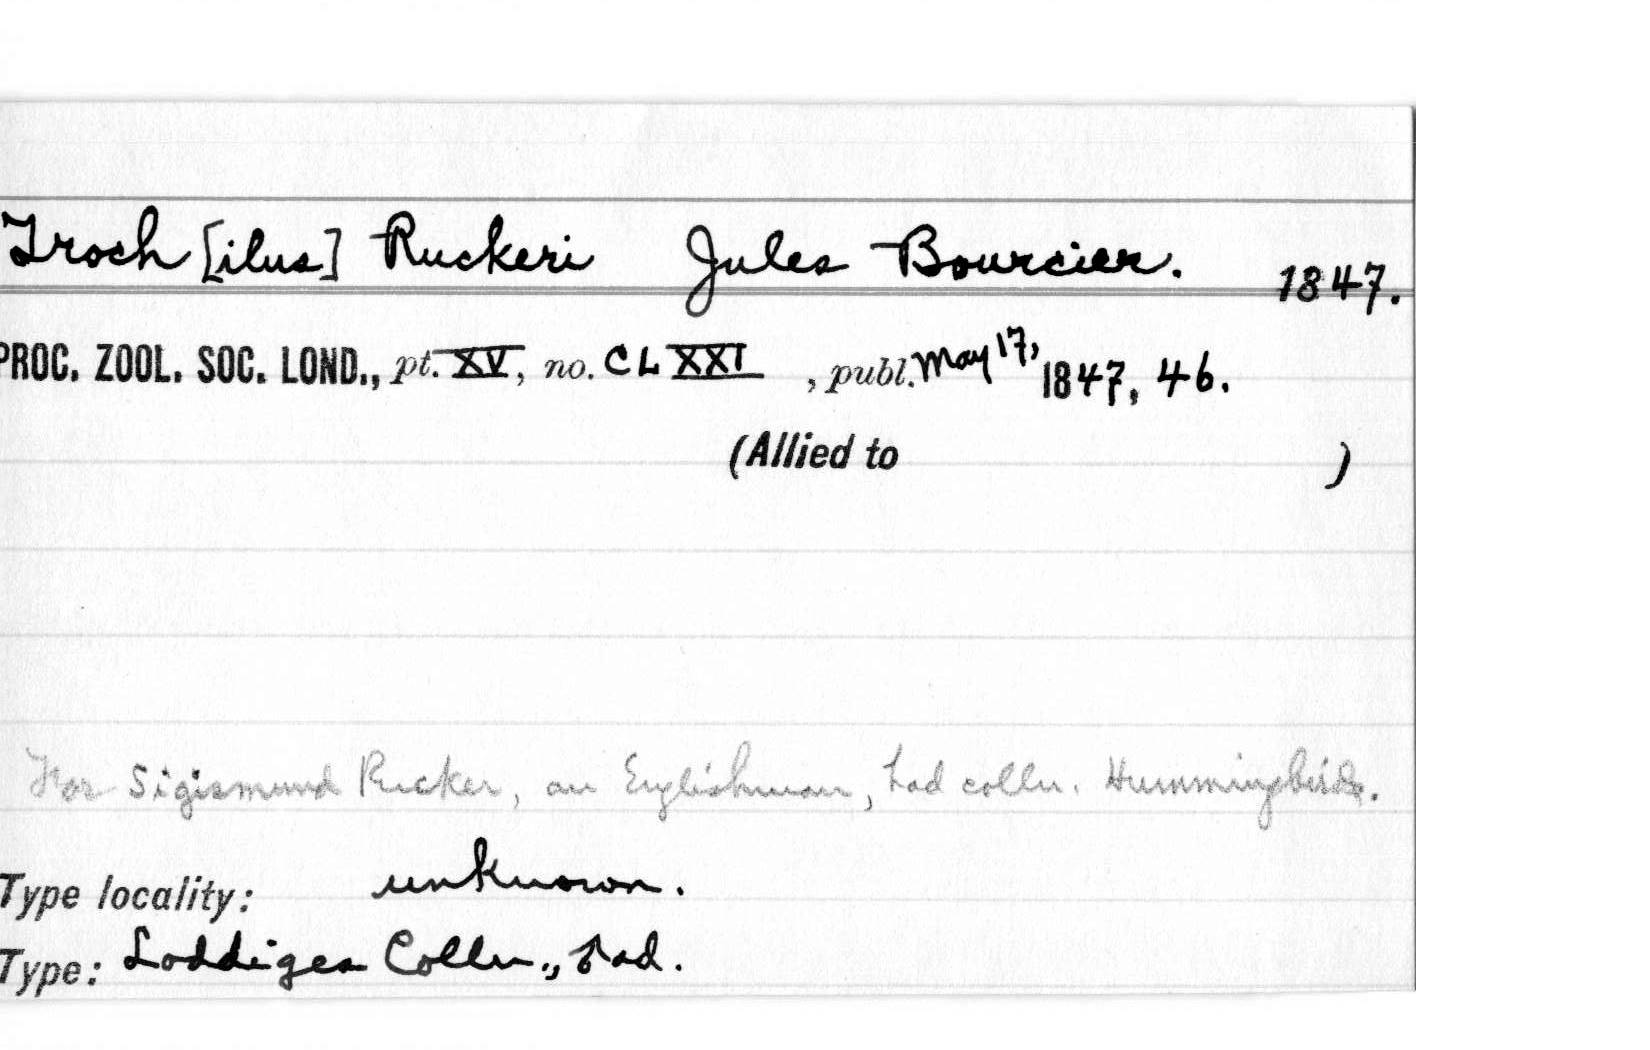 Troch [ilus] Ruckeri Jules Bourcier. 1847.
PROC. ZOOL. SOC. LOND., pt. XV, no. CLXXI , publ. May 17, 1847, 46.
(Allied to )
For Sigismund Rucker, an Englishman, had colln. Hummingbirds.
Type locality: unknown.
Type: Loddiges Colln.,